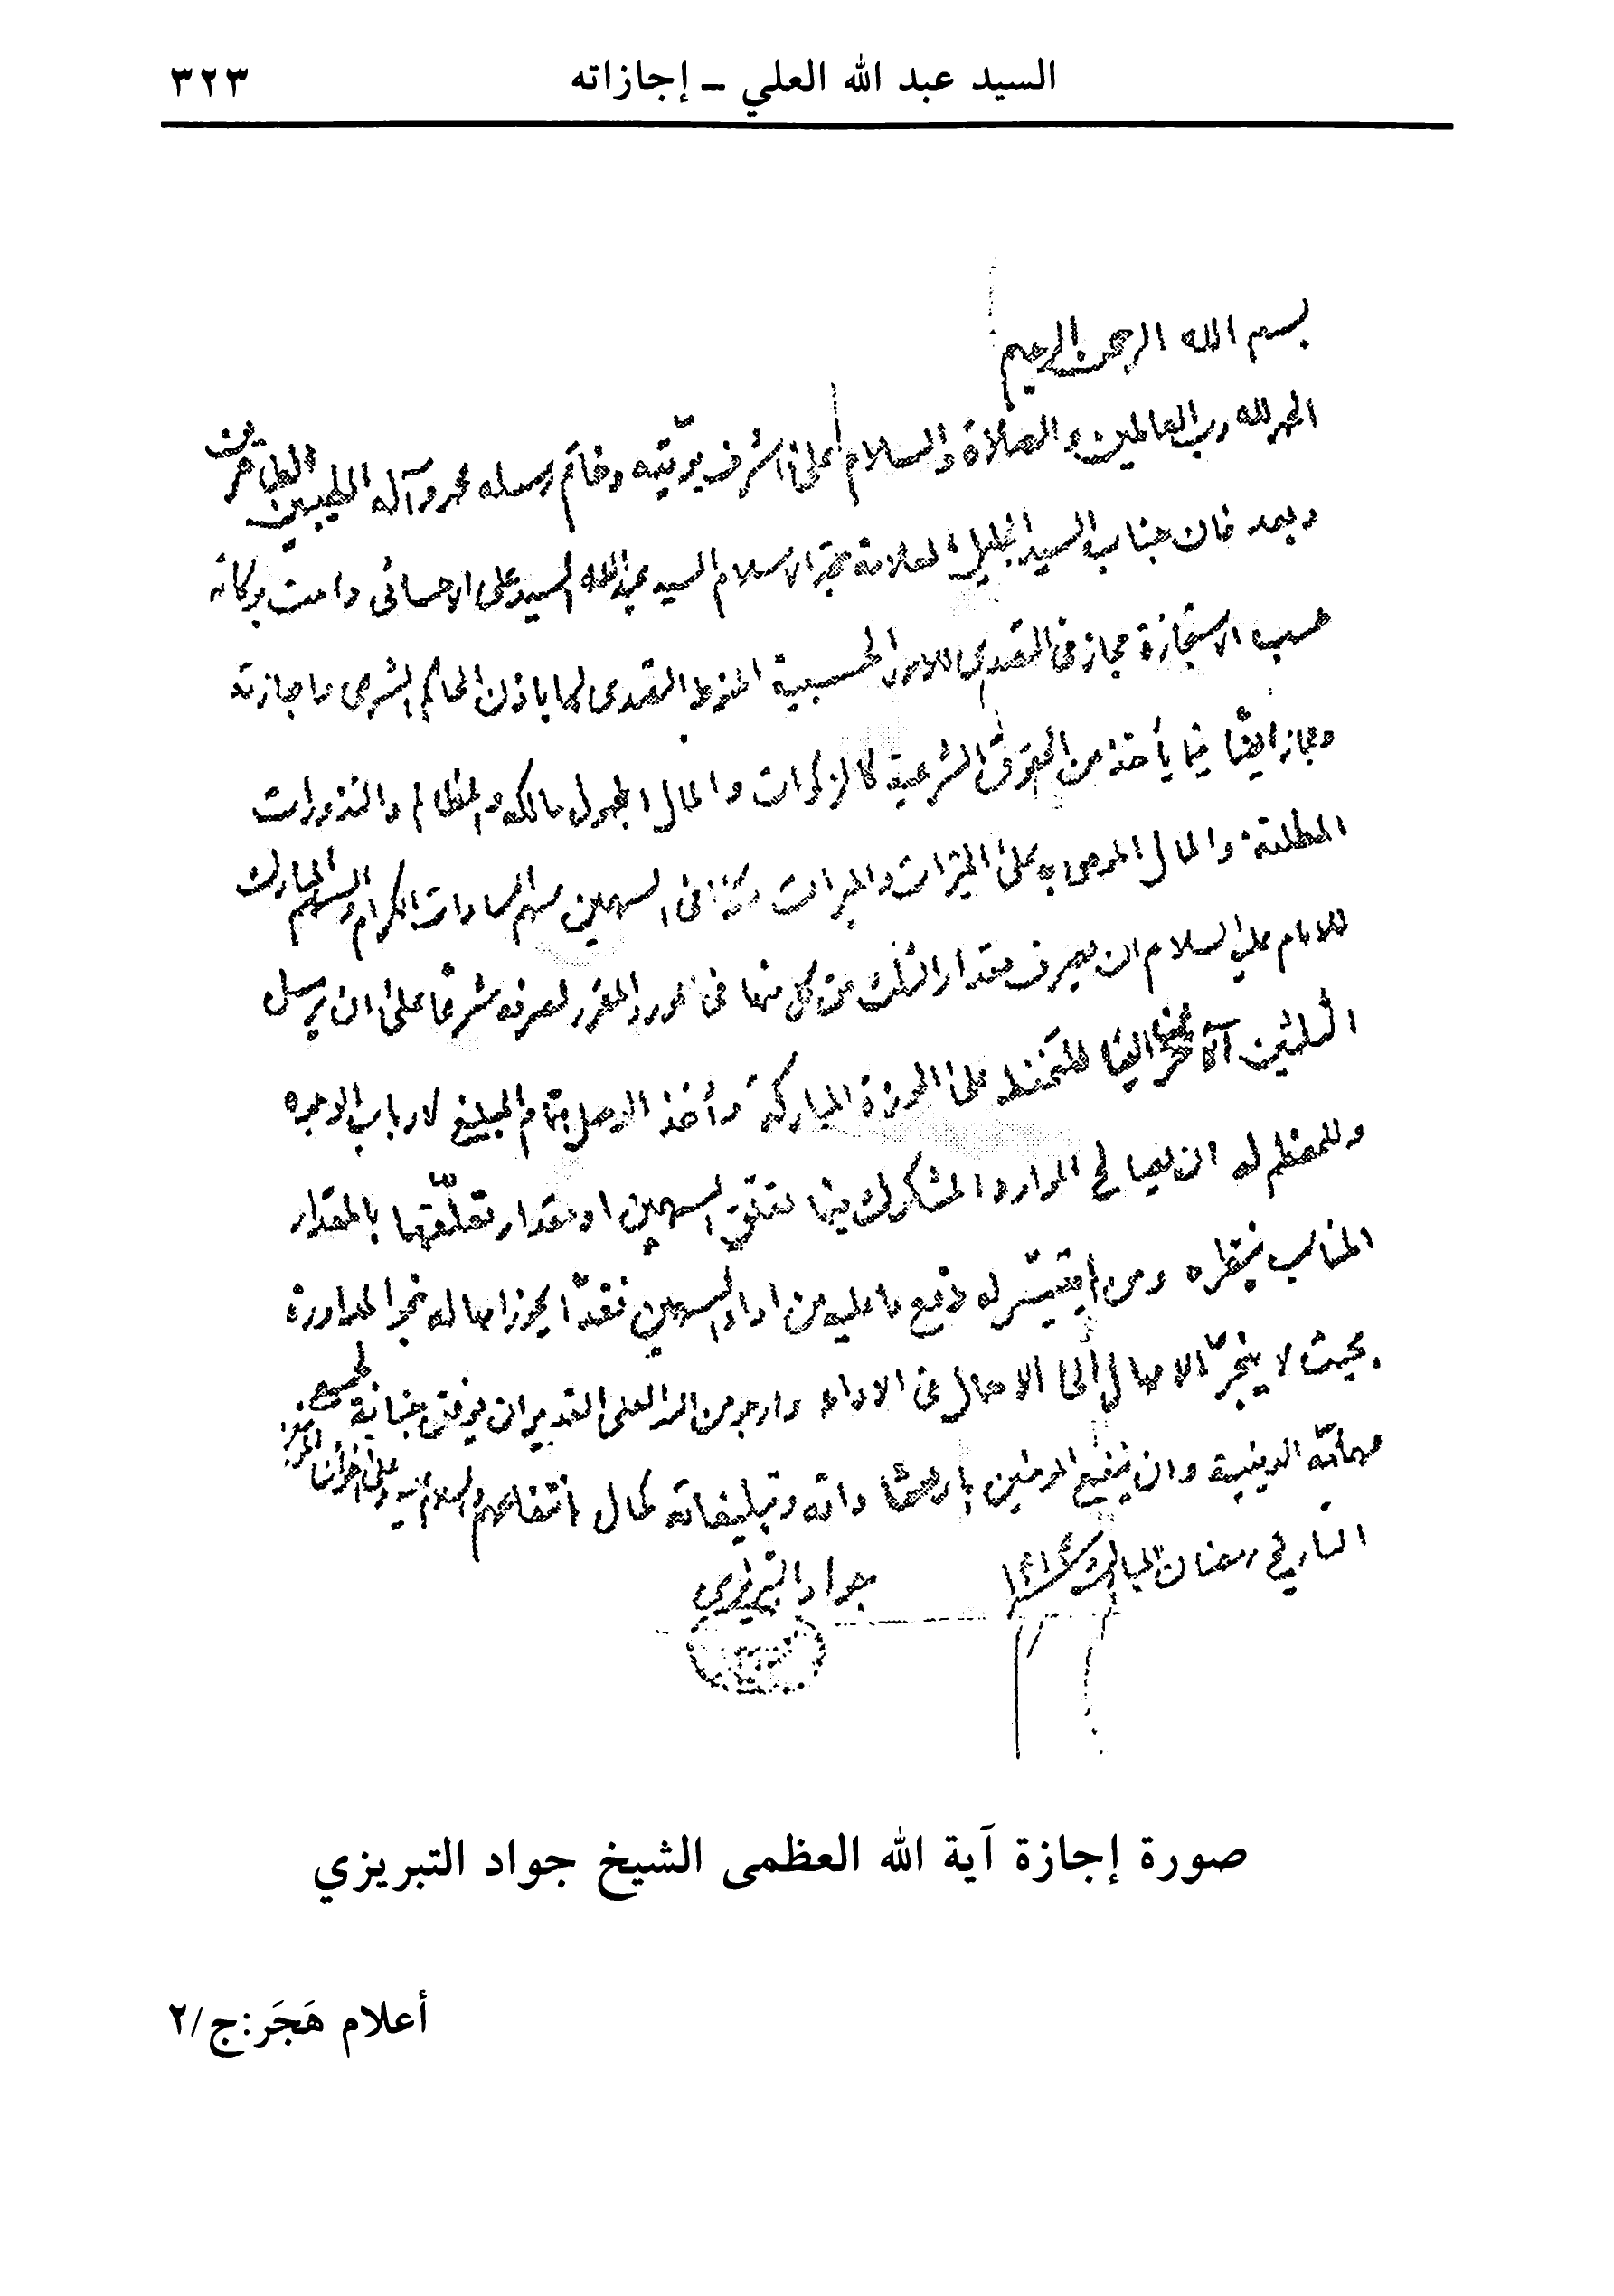 السيد عبد الله العلي – إجازاته
٣٢٣
بسم الله الرحمن الرحيم
الحمد لله رب العالمين والصلاة والسلام على اشرف بريّته وخاتم رسله محمد وآله الطيبين الطاهرين
وبعد فان جناب السيد الجليل العلامة حجة الاسلام السيد عبد الله السيد علي الاحسائي دامت بركاته
حسب الاستجازة مجاز في التصدي للامور الحسبية المنوط التصدي لها باذن الحاكم الشرعي واجازته
ومجاز ايضًا فيما يأخذ من الحقوق الشرعية كالزكوات والمال المجهول مالكه والمظالم والنذورات
المطلقة والمال الموصى به على الخيرات والمبرات وكذا في السهمين سهم السادات الكرام والسهم المبارك
للامام عليه السلام ان يصرف مقدار الثلث من كل منها في المورد المقرر لصرفه شرعًا على ان يرسل
الثلثين الينا للتحفظ على الحوزة المباركة وأخذ الوصل بتمام المبلغ لارباب الوجوه
وللمعظم له ان يصالح الموارد المشكوك فيها تعلّق السهمين او مقدار تعلّقها بالمقدار
المناسب بنظره ومن له دفع ما عليه من اداء السهمين نقدًا يجوز امهاله نحو المداورة
بحيث لا ينجرّ الامهال إلى الاهمال في الاداء وارجو من الله العلي القدير ان يوفق جنابه لجميع
مهماته الدينية وان ينفع المؤمنين بارشاداته وتبليغاته كمال انتفاعهم والسلام عليه وعلى اخواننا
التاريخ رمضان المبارك
جواد التبريزي
صورة إجازة آية الله العظمى الشيخ جواد التبريزي
أعلام هَجَر:ج/٢